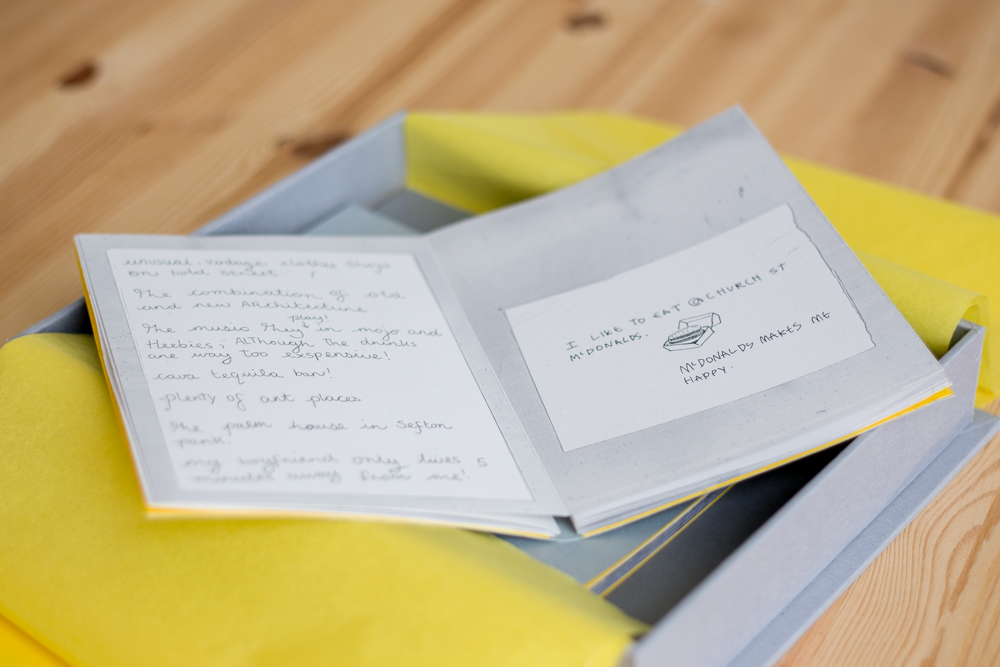 unusual vintage clothes shops
on bold street. !
The combination of old
and new ARchitecture
play!
The music They in mojo and
Heebies; ALThough The drinks
are way Too exspensive!
cava tequila bar!
plenty of art places
The palm house in Sefton
park.
my boyfriend only lives 5
minutes away from me!
I LIKE TO EAT @ CHURCH ST
McDONALDS.
McDONALDS MAKES ME
HAPPY.